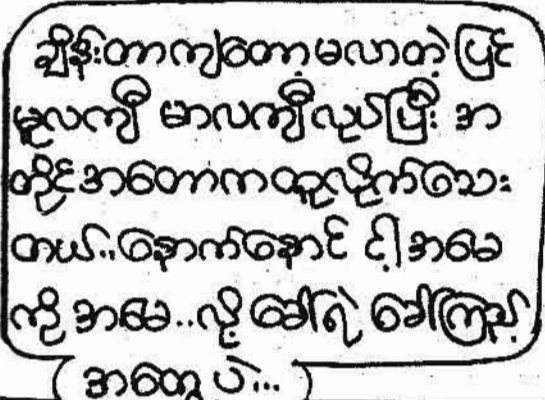 ချိန်းတာကျတော့မလာတဲ့ပြင်
မူလကျီ မာလကျီလုပ်ပြီး အာ
တိုင်အတောကထူလိုက်သေး
တယ်..နောက်နောင် ငါ့အမေ
ကို အမေ..လို့ ခေါ်ရဲ ခေါ်ကြည့်
(အတွေ့ပဲ...)